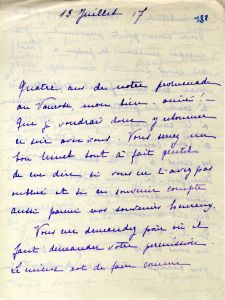 13 Juillet 17
138
Quatre ans de notre promenade
au Vanose, mon bien aimé,
que je voudrais donc y retourner
ce soir avec vous. Vous serez un
bon tout à fait gentil
de me dire si vous ne l'avez pas
oublié et si ce souvenir compte
aussi parmi vos souvenirs heureux.
Vous me demandez par où il
faut demander votre permission.
Le mieux est de faire comme